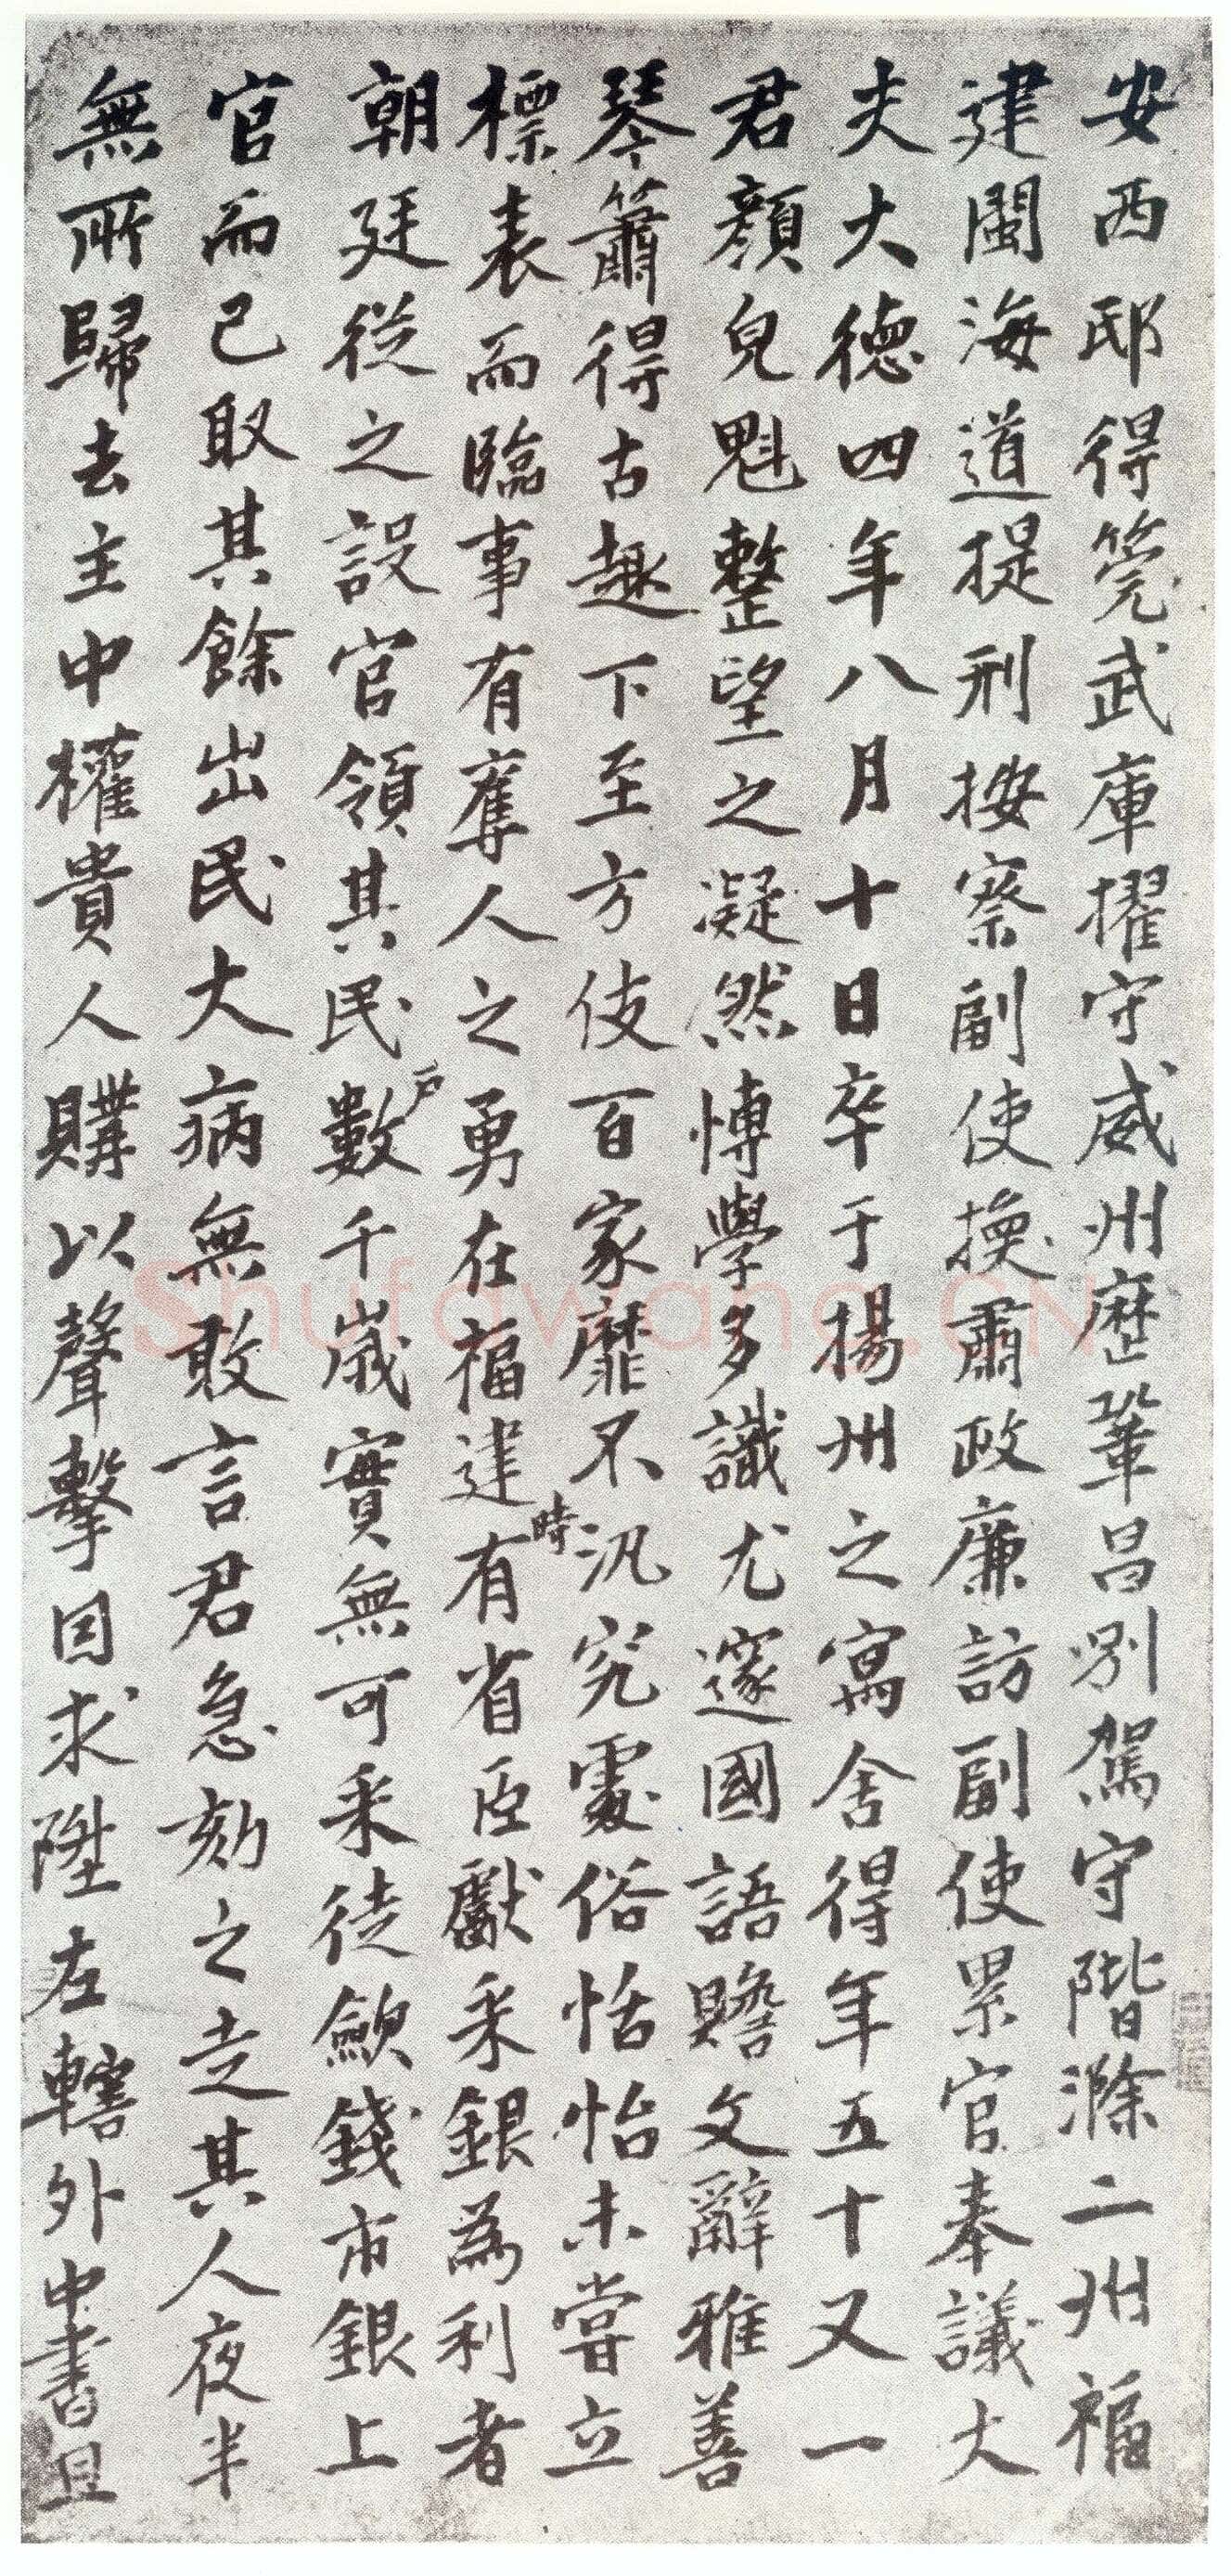 安西邸得筦武庫擢守威州歷鞏昌別駕守階滁二州福
建閩海道提刑按察副使換肅政廉訪副使累官奉議大
夫大德四年八月十日卒于揚州之寓舍得年五十又一
君顏皃魁整望之凝然博學多識尤邃國語贍文辭雅善
琴簫得古趣下至方伎百家靡不汎究處俗恬怡未嘗立
標表而臨事有奪人之勇在福建時有省臣獻采銀為利者
朝廷從之設官領其民戶數千歲實無可采徒斂錢市銀上
官而已取其餘出民大病無敢言君急劾之走其人夜半
無所歸去主中權貴人購以聲擊因求陞左轄外中書且
Shufawang.CN